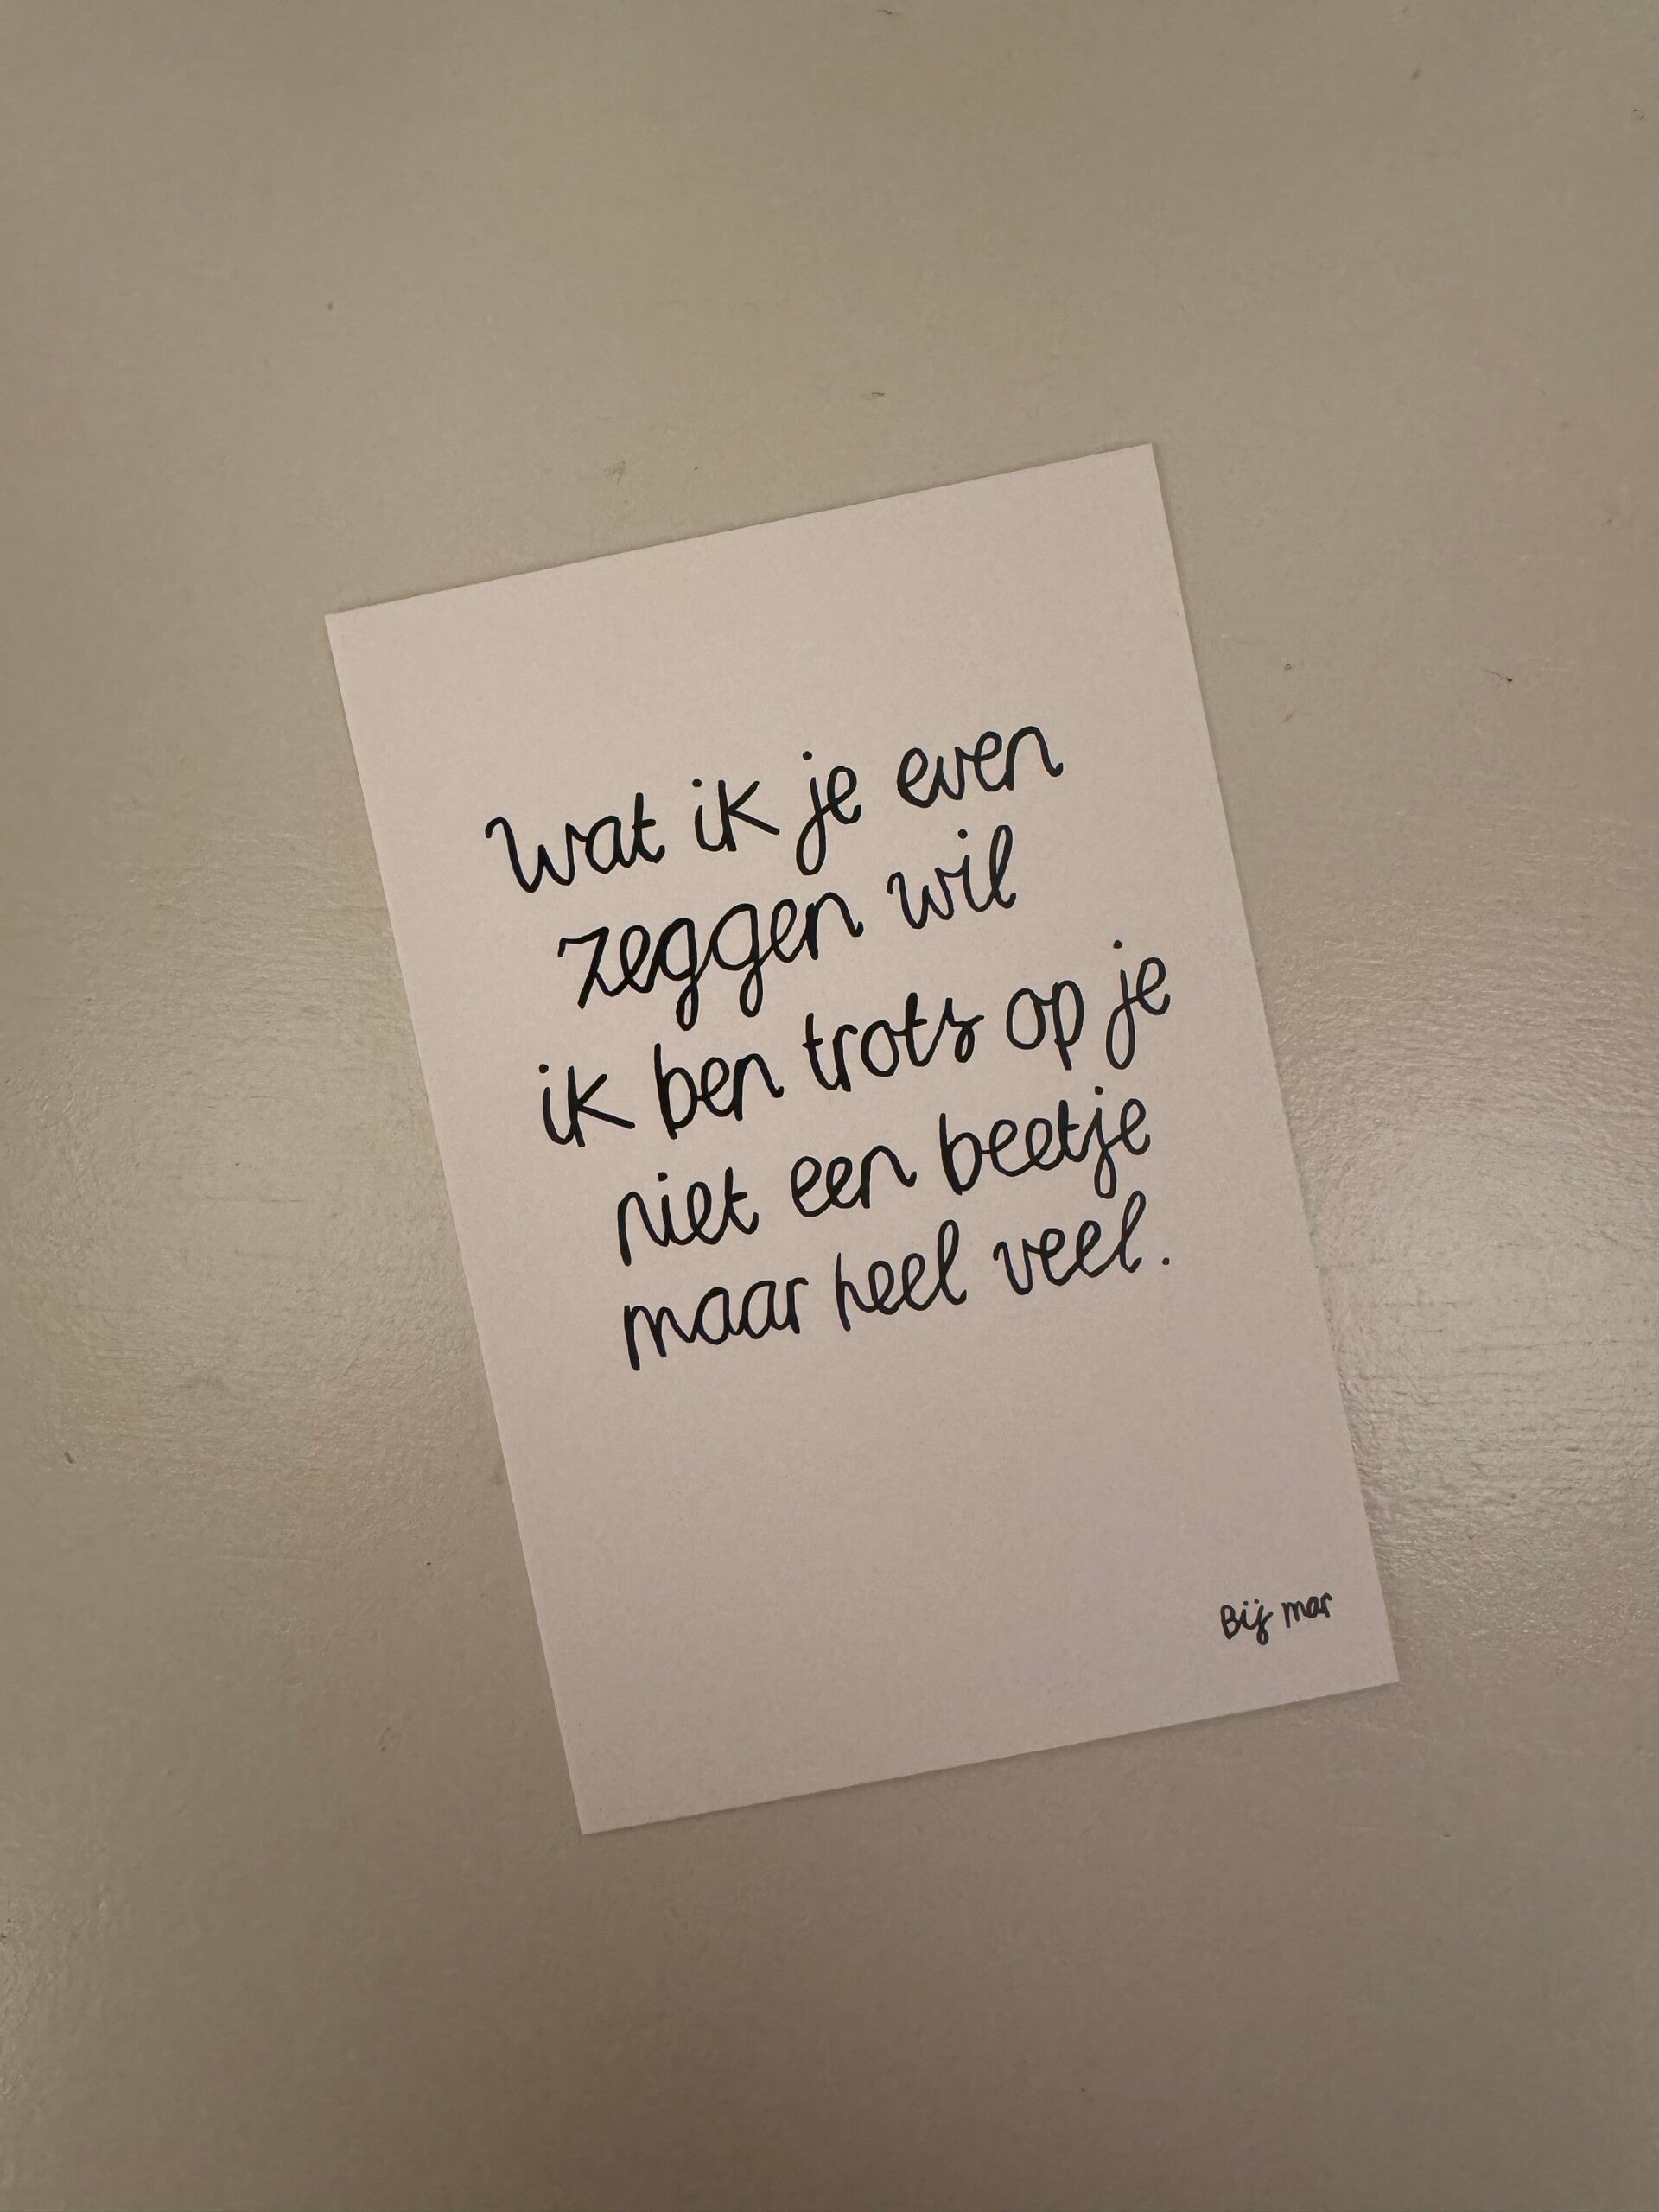 Wat ik je even
zeggen wil
ik ben trots op je
niet een beetje
maar heel veel.
Bij mar